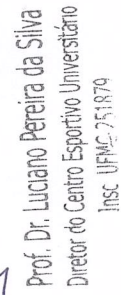 Prof. Dr. Luciano Pereira da Silva
Diretor do Centro Esportivo Universitário
Insc UFMG 251879